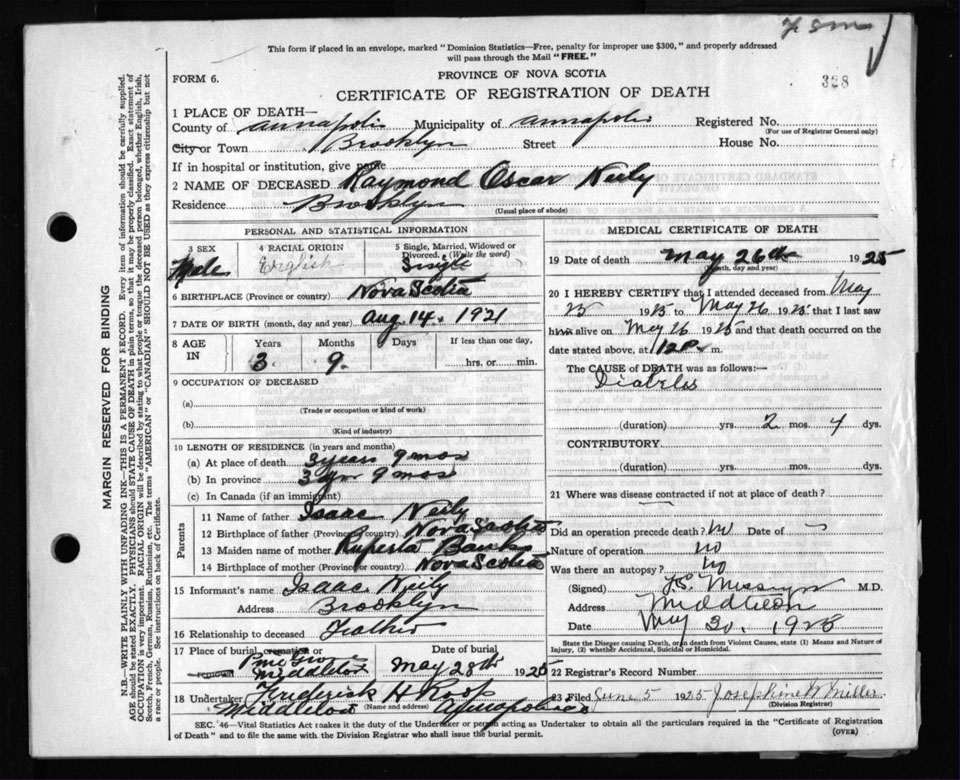 This form if placed in an envelope, marked "Dominion Statistics—Free, penalty for improper use $300," and properly addressed
will pass through the Mail "FREE."
FORM 6.
PROVINCE OF NOVA SCOTIA
328
CERTIFICATE OF REGISTRATION OF DEATH
1 PLACE OF DEATH—
County of Annapolis Municipality of Annapolis Registered No.
(For use of Registrar General only)
City or Town Brooklyn Street House No.
If in hospital or institution, give name
2 NAME OF DECEASED Raymond Oscar Neily
Residence Brooklyn
(Usual place of abode)
PERSONAL AND STATISTICAL INFORMATION
3 SEX 4 RACIAL ORIGIN 5 Single, Married, Widowed or
Divorced. (Write the word)
Male English Single
6 BIRTHPLACE (Province or country) Nova Scotia
7 DATE OF BIRTH (month, day and year) Aug. 14. 1921
8 AGE IN Years Months Days If less than one day,
3 9 hrs. or min.
9 OCCUPATION OF DECEASED
(a)
(Trade or occupation or kind of work)
(b)
(Kind of industry)
10 LENGTH OF RESIDENCE (in years and months)
(a) At place of death 3 years 9 mos
(b) In province 3 yr 9 mos
(c) In Canada (if an immigrant)
Parents
11 Name of father Isaac Neily
12 Birthplace of father (Province or country) Nova Scotia
13 Maiden name of mother Ruperta Banks
14 Birthplace of mother (Province or country) Nova Scotia
15 Informant's name Isaac Neily
Address Brooklyn
16 Relationship to deceased Father
17 Place of burial, cremation or removal Date of burial
Pine Grove
Middleton May 28th 1925
18 Undertaker Frederick H Roop
Middleton (Name and address) Annapolis Co
MEDICAL CERTIFICATE OF DEATH
19 Date of death May 26th 1925
(month, day and year)
20 I HEREBY CERTIFY that I attended deceased from May
23 1925 to May 26 1925 that I last saw
him alive on May 26 1925 and that death occurred on the
date stated above, at 12 P m.
The CAUSE of DEATH was as follows:—
Diabetes
(duration) yrs. 2 mos. 4 dys.
CONTRIBUTORY
(duration) yrs. mos. dys.
21 Where was disease contracted if not at place of death?
Did an operation precede death? no Date of
Nature of operation no
Was there an autopsy? no
(Signed) M.D.
Address Middleton
Date May 30, 1925
State the Disease causing Death, or in death from Violent Causes, state (1) Means and Nature of
Injury, (2) whether Accidental, Suicidal or Homicidal.
22 Registrar's Record Number
23 Filed June 5 1925 Josephine B Miller
(Division Registrar)
SEC. 46—Vital Statistics Act makes it the duty of the Undertaker or person acting as Undertaker to obtain all the particulars required in the "Certificate of Registration
of Death" and to file the same with the Division Registrar who shall issue the burial permit.
(OVER)
MARGIN RESERVED FOR BINDING
N.B.—WRITE PLAINLY WITH UNFADING INK—THIS IS A PERMANENT RECORD. Every item of information should be carefully supplied.
AGE should be stated EXACTLY. PHYSICIANS should STATE CAUSE OF DEATH in plain terms, so that it may be properly classified. Exact statement of
OCCUPATION is very important. RACIAL ORIGIN will be described by stating to what people or tongue the deceased person belonged, whether English, Irish,
Scotch, French, German, Russian, Ruthenian, etc. The terms "AMERICAN" or "CANADIAN" SHOULD NOT BE USED as they express citizenship but not
a race or people. See instructions on back of Certificate.